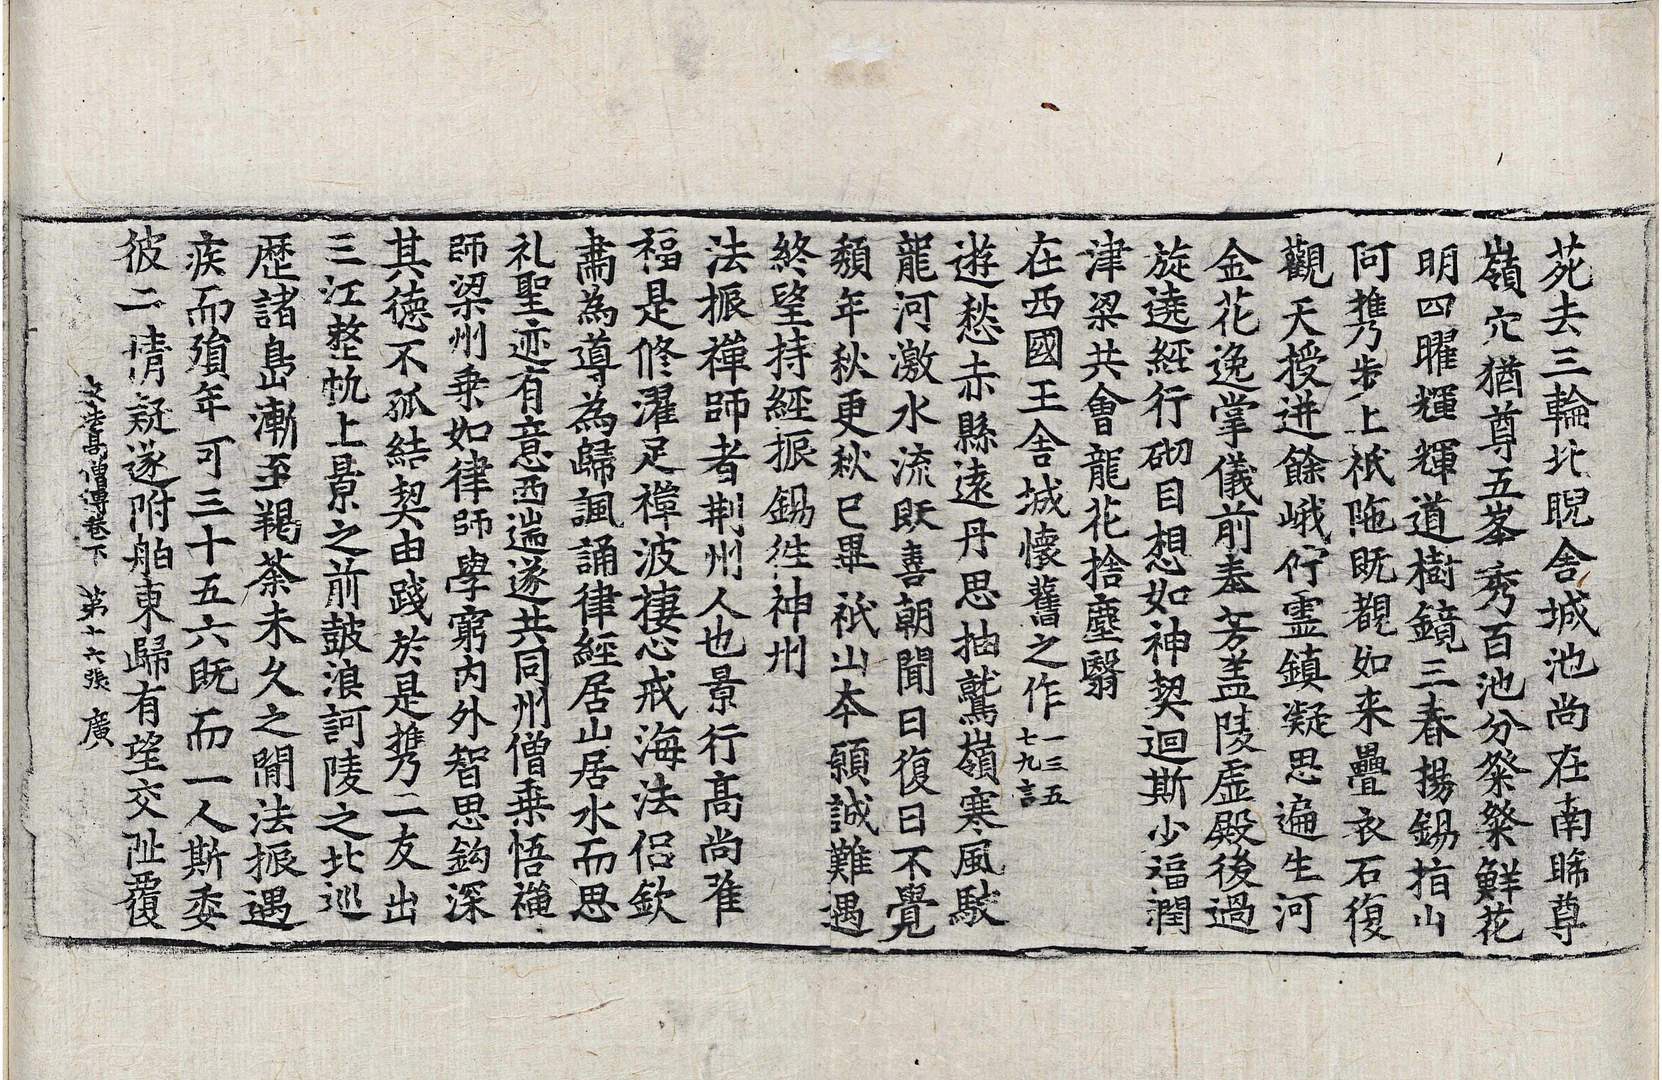 苑去三輪北睨舍城池尚在南睎尊
嶺穴猶尊五峯秀百池分粲粲鮮花
明四曜輝輝道樹鏡三春揚錫指山
阿攜步上祇陁既覩如来疊衣石復
觀天授迸餘峨佇靈鎮凝思遍生河
金花逸掌儀前奉芳盖陵虛殿後過
旋遶經行砌目想如神契迴斯少福潤
津梁共會龍花捨塵翳
在西國王舍城懷舊之作一三五七九言
遊愁赤縣遠丹思抽鷲嶺寒風駛
龍河激水流既喜朝聞日復日不覺
頹年秋更秋已畢祇山本願誠難遇
終望持經振錫徃神州
法振禪師者荆州人也景行高尚唯
福是修濯足禪波棲心戒海法侶欽
肅為導為歸諷誦律經居山居水而思
礼聖迹有意西遄遂共同州僧乗悟禪
師梁州乗如律師學窮內外智思鈎深
其德不孤結契由踐於是攜二友出
三江整帆上景之前鼓浪訶陵之北巡
歷諸島漸至羯荼未久之間法振遇
疾而殞年可三十五六既而一人斯委
彼二情疑遂附舶東歸有望交阯覆
求法高僧傳卷下 第十六張 廣